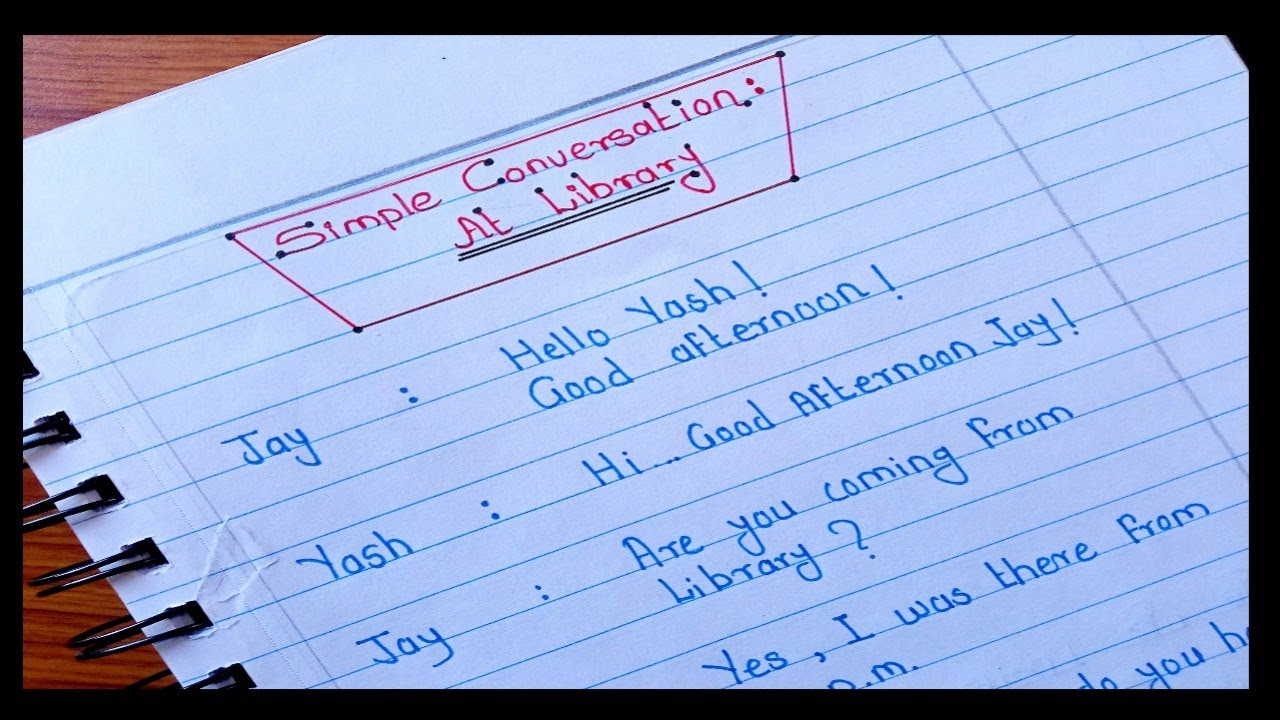 Simple Conversation:
At Library
Jay : Hello Yash!
Good afternoon!
Yash : Hi... Good Afternoon Jay!
Jay : Are you coming from
Library?
Yes, I was there from
p.m.
do you